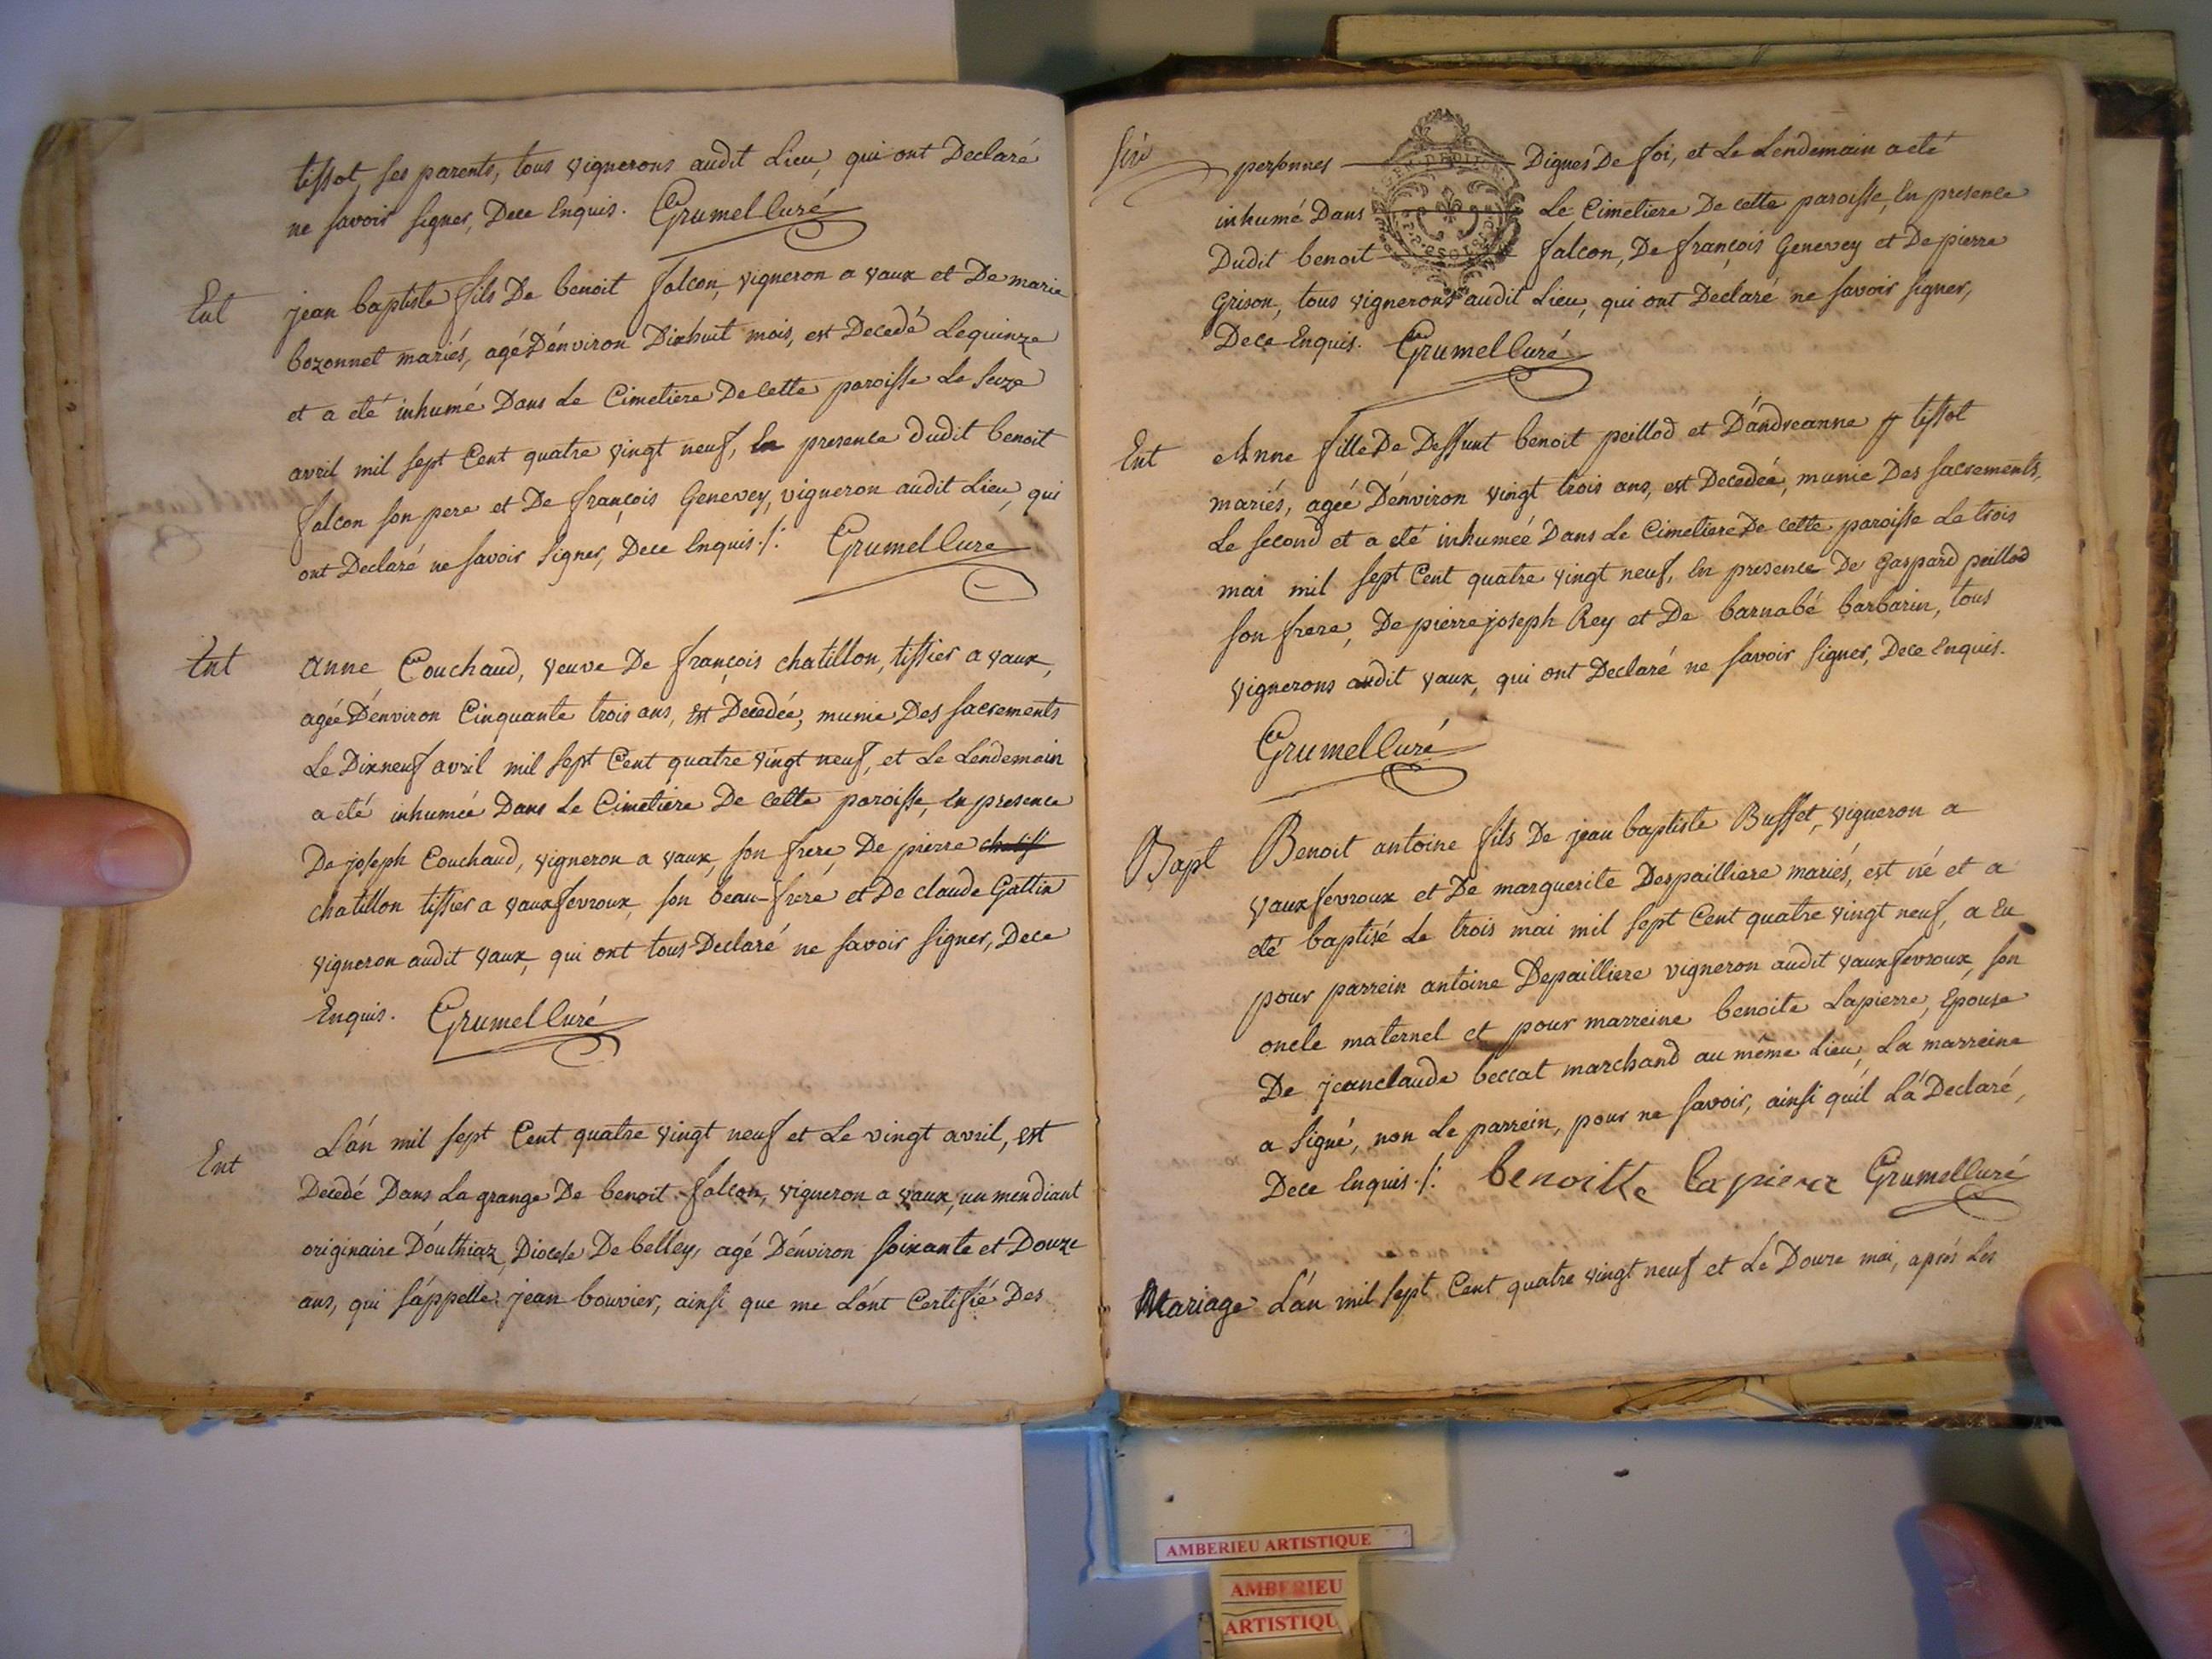 tissot, ses parents, tous vignerons audit Lieu, qui ont Declaré
ne savoir signer, Dece Enquis. Grumel Curé
Ent jean baptiste fils De benoit falcon, vigneron a vaux et De marie
bozonnet mariés, agé D'énviron Dixhuit mois, est Decedé Le quinze
et a eté inhumé Dans Le Cimetiere De Cette paroisse Le seize
avril mil sept Cent quatre vingt neuf, En presence dudit benoit
falcon son pere et De françois Genevey, vigneron audit Lieu, qui
ont Declaré ne savoir signer, Dece Enquis ./: Grumel Cure
Ent anne Couchaud, veuve De françois chatillon, tissier a vaux,
agée D'énviron Cinquante trois ans, est Decedée, munie Des sacrements
Le Dixneuf avril mil sept Cent quatre vingt neuf, et Le Lendemain
a eté inhumée Dans Le Cimetiere De Cette paroisse, En presence
De joseph Couchaud, vigneron a vaux, son frere, De pierre chatill
chatillon tissier a vauxfevroux, son beau-frere et De claude Gattin
vigneron audit vaux, qui ont tous Declaré ne savoir signer, Dece
Enquis. Grumel Curé
Ent L'án mil sept Cent quatre vingt neuf et Le vingt avril, est
Decedé Dans La grange De benoit falcon, vigneron a vaux, un mendiant
originaire D'outhiaz, Diocese De belley, agé D'énviron soixante et Douze
ans, qui s'áppelle jean bouvier, ainsi que me L'ónt Certifié Des
personnes Dignes De foi, et Le Lendemain a eté
inhumé Dans Le Cimetiere De Cette paroisse, En presence
Dudit benoit falcon, De françois Genevey et De pierre
Grison, tous vignerons audit Lieu, qui ont Declaré ne savoir signer,
Dece Enquis. Grumel Curé
Ent Anne fille De Deffunt benoit peillod et D'ándréanne tissot
mariés, agée D'énviron vingt trois ans, est Decedée, munie Des sacrements,
Le second et a eté inhumée Dans Le Cimetiere De Cette paroisse Le trois
mai mil sept Cent quatre vingt neuf, En presence De Gaspard peillod
son frere, De pierre joseph Rey et De barnabé barbarin, tous
vignerons audit vaux, qui ont Declaré ne savoir signer, Dece Enquis.
Grumel Curé
Bapt Benoit antoine fils De jean baptiste Buffet, vigneron a
vauxfevroux et De marguerite Despailliere mariés, est né et a
eté baptisé Le trois mai mil sept Cent quatre vingt neuf, a Eu
pour parrein antoine Depailliere vigneron audit vauxfevroux, son
oncle maternel et pour marreine benoite Lapierre, Epouse
De jeanclaude beccat marchand au même Lieu, La marreine
a signé, non Le parrein, pour ne savoir, ainsi qu'il L'á Declaré,
Dece Enquis ./: benoitte lapierre Grumel Curé
Mariage L'án mil sept Cent quatre vingt neuf et Le Douze mai, aprés Les
AMBERIEU ARTISTIQUE
AMBERIEU
ARTISTIQU